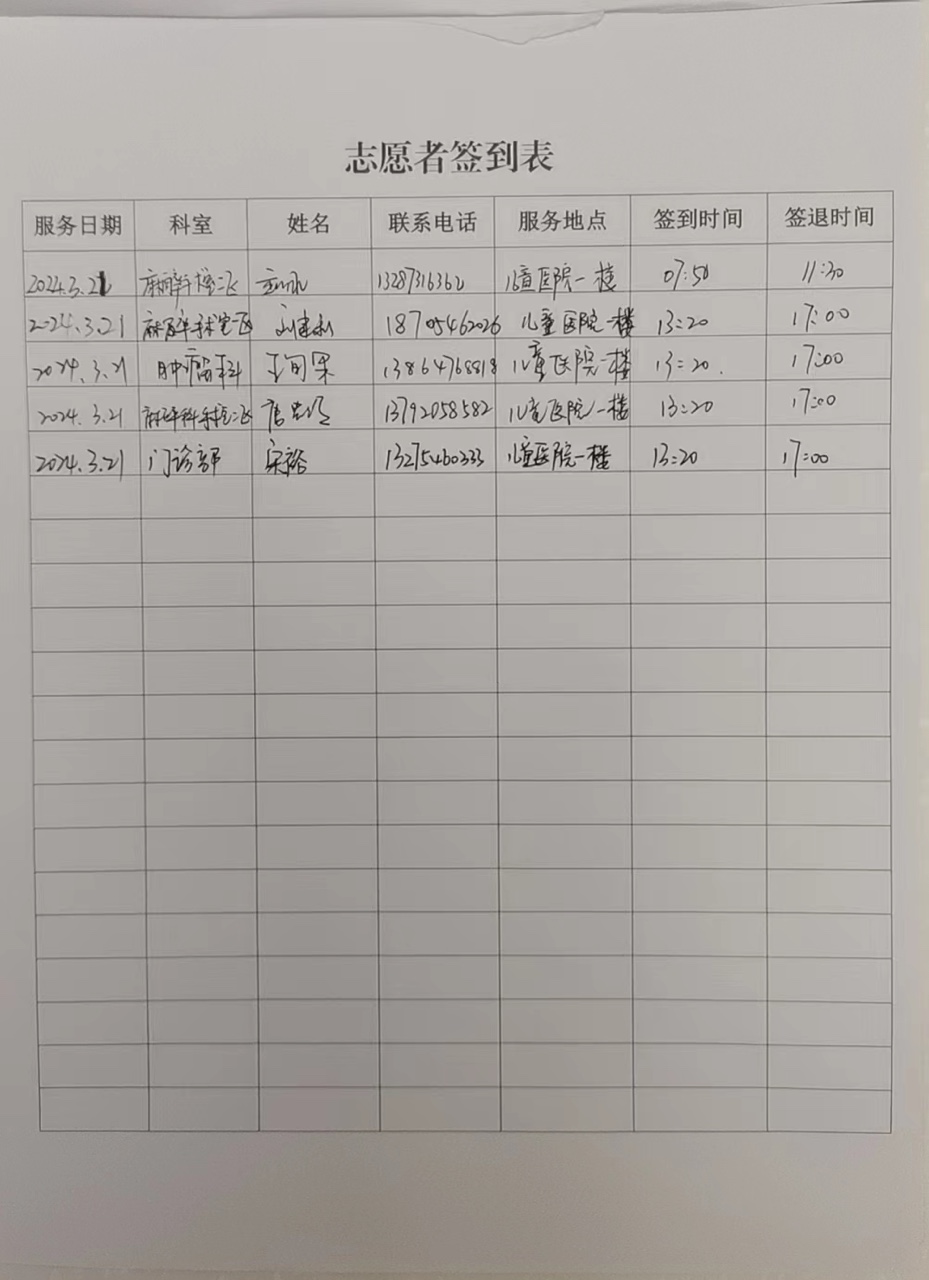 志愿者签到表
服务日期 科室 姓名 联系电话 服务地点 签到时间 签退时间
2024.3.21 13287316362 儿童医院一楼 07:50 11:30
2024.3.21 麻醉手术室二区 18705462026 儿童医院一楼 13:20 17:00
2024.3.21 肿瘤科 13864768818 儿童医院一楼 13:20. 17:00
2024.3.21 麻醉科手术室二区 13792058582 儿童医院一楼 13:20 17:00
2024.3.21 门诊部 宋裕 13275460333 儿童医院一楼 13:20 17:00